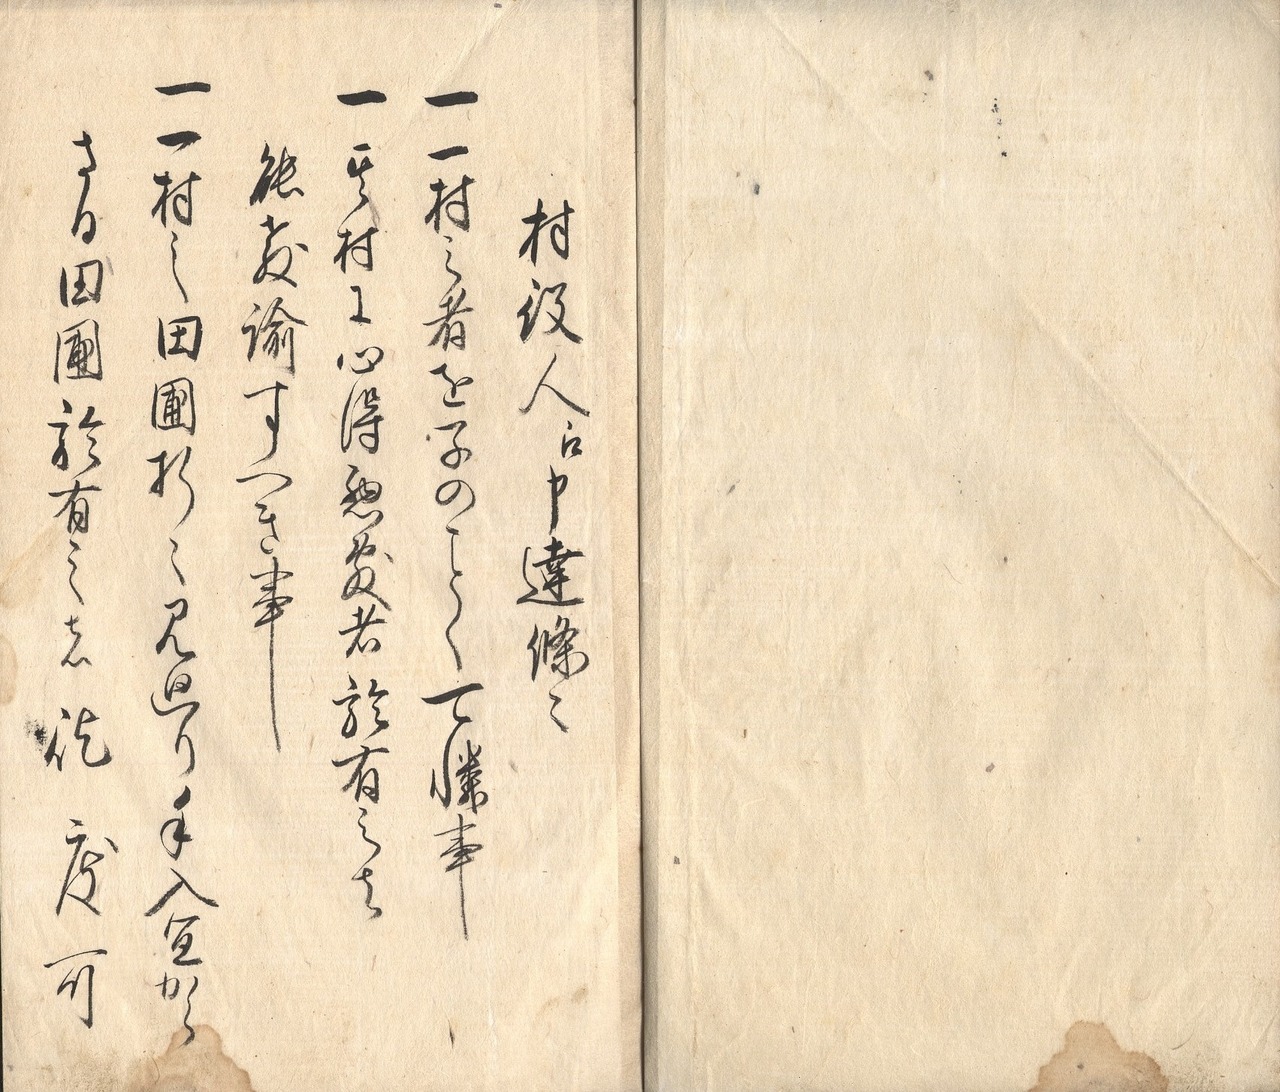 村役人江申達條々
一一村之者を子のことく可憐事
一其村ニ心得惡敷者於有之者
能教諭すへき事
一一村之田圃折々見廻り手入宜から
さる田圃於有之者 屹度可